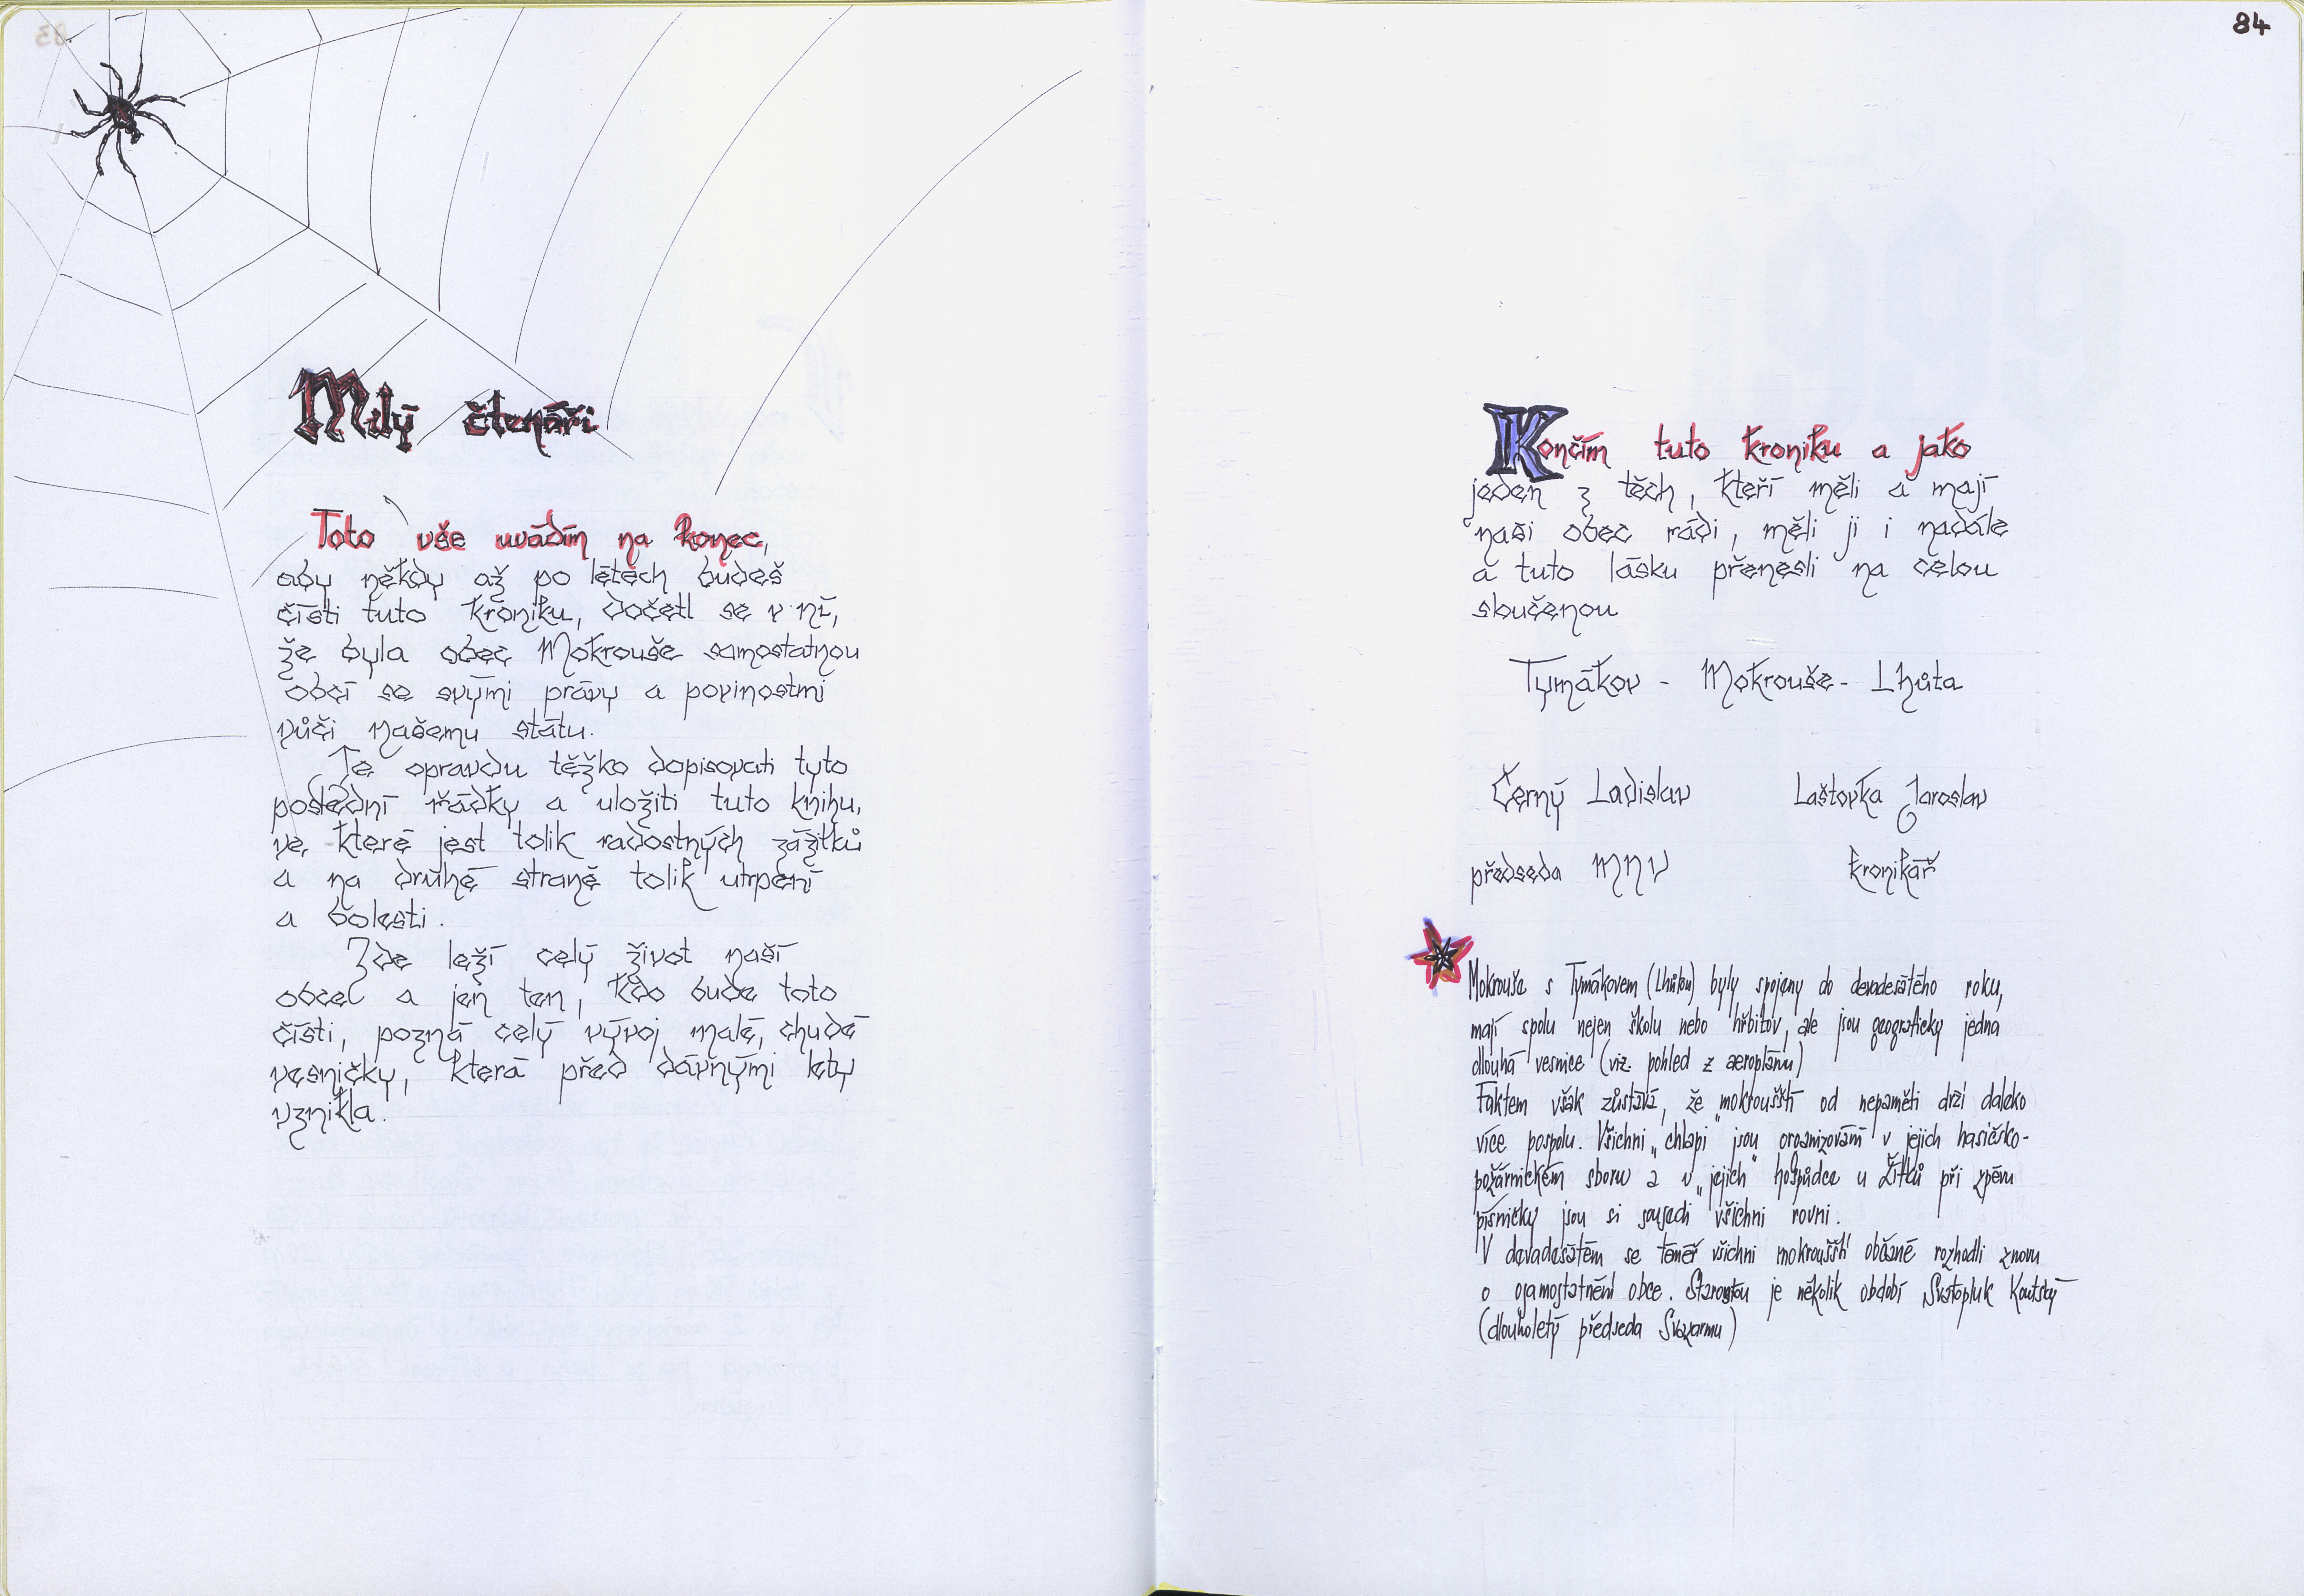 Milý čtenáři
Toto vše uvádím na konec,
aby někdy až po létech budeš
čísti tuto kroniku, dočetl se v ní,
že byla obec Mokrouše samostatnou
obcí se svými právy a povinostmi
vůči našemu státu.
Je opravdu těžko dopisovati tyto
poslední řádky a uložiti tuto knihu,
ve které jest tolik radostných zážitků
a na druhé straně tolik utrpení
a bolesti.
Zde leží celý život naší
obce a jen ten, kdo bude toto
čísti, pozná celý vývoj malé, chudé
vesničky, která před dávnými lety
vznikla.
84
Končím tuto kroniku a jako
jeden z těch, kteří měli a mají
naši obec rádi, měli ji i nadále
a tuto lásku přenesli na celou
sloučenou
Tymákov - Mokrouše - Lhůta
Černý Ladislav Laštovka Jaroslav
předseda MNV kronikář
Mokrouše s Tymákovem (Lhůtou) byly spojeny do devadesátého roku,
mají spolu nejen školu nebo hřbitov, ale jsou geograficky jedna
dlouhá vesnice (viz. pohled z aeroplánu)
Faktem však zůstává, že mokroušští od nepaměti drží daleko
více pospolu. Všichni „chlapi" jsou organizováni v jejich hasičsko-
požárnickém sboru a v „jejich" hospůdce u Žitků při zpěvu
písničky jsou si sousedi všichni rovni.
V devadesátém se téměř všichni mokroušští občané rozhodli znovu
o osamostatnění obce. Starostou je několik období Svatopluk Koutský
(dlouholetý předseda Svazarmu)